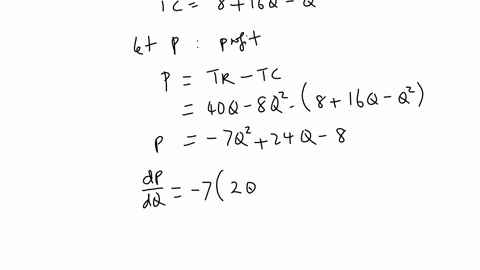 TC = 8 + 16Q - Q²
let P : profit
P = TR - TC
= 40Q - 8Q² - (8 + 16Q - Q²)
P = -7Q² + 24Q - 8
dP/dQ = -7(2Q